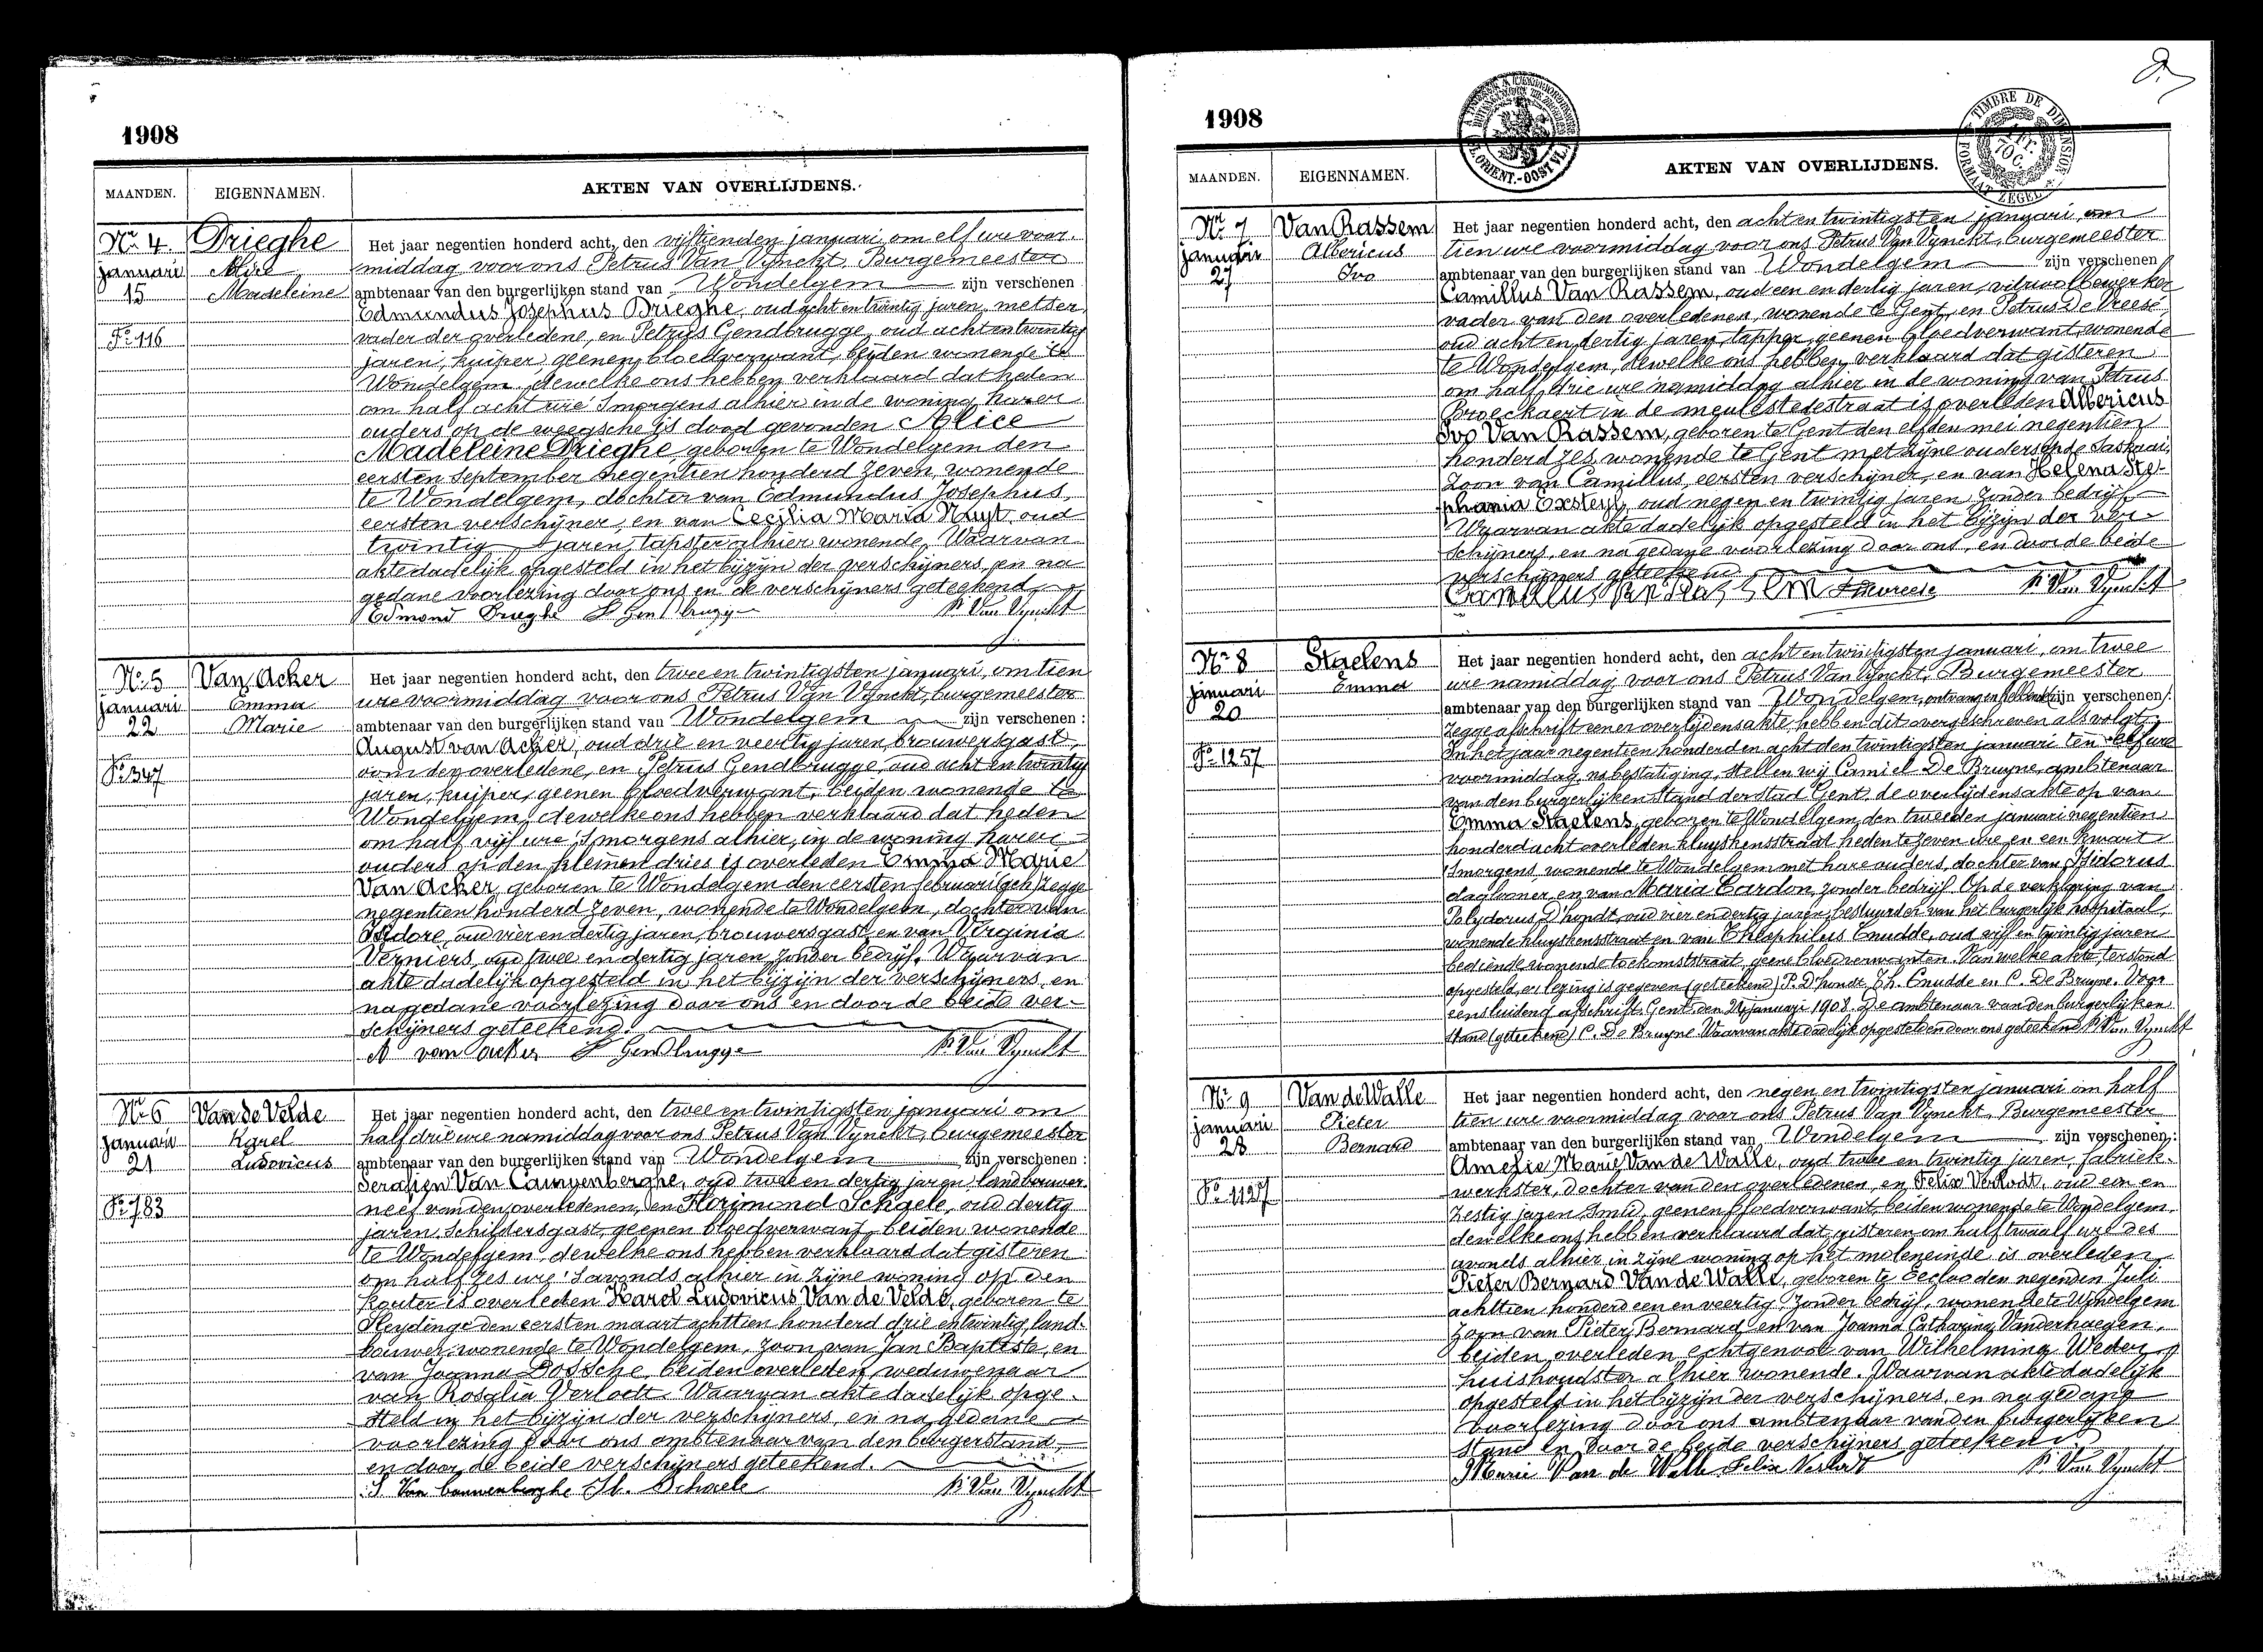 1908
MAANDEN. EIGENNAMEN. AKTEN VAN OVERLIJDENS.
Nr. 4 Drieghe Het jaar negentien honderd acht, den vijftienden januari om elf ure voor-
januari Alice middag voor ons Petrus Van Vynckt, Burgemeester
15 Madeleine ambtenaar van den burgerlijken stand van Wondelgem zijn verschenen
Edmundus Josephus Drieghe, oud acht en twintig jaren, metser,
vader der overledene, en Petrus Gendbrugge, oud acht en twintig
Fo. 116
jaren, kuiper, geenen bloedverwant, beiden wonende te
Wondelgem, dewelke ons hebben verklaard dat heden
om half acht ure 's morgens alhier in de woning harer
ouders op de is dood gevonden Alice
Madeleine Drieghe geboren te Wondelgem den
eersten september negentien honderd zeven, wonende
te Wondelgem, dochter van Edmundus Josephus,
eersten verschijner, en van Cecilia Maria Nuyt, oud
twintig jaren, tapster alhier wonende. Waarvan
akte dadelijk opgesteld in het bijzijn der verschijners, en na
gedane voorlezing door ons en de verschijners geteekend
Edmond Drieghe P Gendbrugge P. Van Vynckt
Nr. 5 Van Acker Het jaar negentien honderd acht, den twee en twintigsten januari, om tien
januari Emma ure voormiddag voor ons Petrus Van Vynckt, burgemeester
22 Marie ambtenaar van den burgerlijken stand van Wondelgem zijn verschenen :
August van Acker, oud drie en veertig jaren, brouwersgast,
Fo. 347
oom der overledene, en Petrus Gendbrugge, oud acht en twintig
jaren, kuiper, geenen bloedverwant, beiden wonende te
Wondelgem, dewelke ons hebben verklaard dat heden
om half vijf ure 's morgens alhier, in de woning harer
ouders op den kleinen dries is overleden Emma Marie
Van Acker, geboren te Wondelgem den eersten februari zegge
negentien honderd zeven, wonende te Wondelgem, dochter van
Isidore, oud vier en dertig jaren, brouwersgast, en van Virginia
Verniers, oud twee en dertig jaren, zonder bedrijf. Waarvan
akte dadelijk opgesteld in het bijzijn der verschijners, en
na gedane voorlezing door ons en door de beide ver-
schijners geteekend.
A van acker P Gendbrugge P. Van Vynckt
Nr. 6 Van de Velde Het jaar negentien honderd acht, den twee en twintigsten januari om
januari Karel half drie ure namiddag voor ons Petrus Van Vynckt, burgemeester
21 Ludovicus ambtenaar van den burgerlijken stand van Wondelgem zijn verschenen :
Serafien Van Caunenberghe, oud twee en dertig jaren, landbouwer,
Fo. 783
neef van den overledenen, en Florimond Schaele, oud dertig
jaren, schildersgast, geenen bloedverwant, beiden wonende
te Wondelgem, dewelke ons hebben verklaard dat gisteren
om half zes ure 's avonds alhier in zijne woning op den
kouter is overleden Karel Ludovicus Van de Velde, geboren te
Sleydinge den eersten maart achttien honderd drie en twintig, land-
bouwer, wonende te Wondelgem, zoon van Jan Baptiste, en
van Joanna Dossche, beiden overleden, weduwenaar
van Rosalia Verlodt. Waarvan akte dadelijk opge-
steld in het bijzijn der verschijners, en na gedane
voorlezing door ons ambtenaar van den burgerstand,
en door de beide verschijners geteekend.
S. Van Caunenberghe Fl. Schaele P. Van Vynckt
1908
MAANDEN. EIGENNAMEN. AKTEN VAN OVERLIJDENS.
TIMBRE DE DIMENSION
FORMAAT ZEGEL
Nr. 7 Van Rassem Het jaar negentien honderd acht, den acht en twintigsten januari, om
januari Albericus tien ure voormiddag voor ons Petrus Van Vynckt, burgemeester
27 Ivo ambtenaar van den burgerlijken stand van Wondelgem zijn verschenen
Camillus Van Rassem, oud een en dertig jaren, vitrioolbewerker
vader van den overledenen, wonende te Gent, en Petrus De Vreese,
oud acht en dertig jaren, tapper, geenen bloedverwant, wonende
te Wondelgem, dewelke ons hebben verklaard dat gisteren
om half drie ure namiddag alhier in de woning van Petrus
Broeckaert in de meulestedestraat is overleden Albericus
Ivo Van Rassem, geboren te Gent den elfden mei negentien
honderd zes, wonende te Gent met zijne ouders
zoon van Camillus, eersten verschijner, en van Helena Ste-
phania Exsteyl, oud negen en twintig jaren, zonder bedrijf.
Waarvan akte dadelijk opgesteld in het bijzijn der ver-
schijners, en na gedane voorlezing door ons, en door de beide
verschijners geteekend
Camillus Van Rassem P. Van Vynckt
Nr. 8 Staelens Het jaar negentien honderd acht, den acht en twintigsten januari, om twee
januari Emma ure namiddag voor ons Petrus Van Vynckt, Burgemeester
20 ambtenaar van den burgerlijken stand van Wondelgem, zijn verschenen
zegge afschrift eener overlijdensakte hebben dit overgeschreven als volgt:
Fo. 1257
In het jaar negentien honderd en acht den twintigsten januari ten elf ure
voormiddag, na bestatiging, stellen wij Camiel De Bruyne, ambtenaar
van den burgerlijken stand der stad Gent, de overlijdensakte op van
Emma Staelens, geboren te Wondelgem, den tweeden januari negentien
honderd acht overleden kluyskensstraat heden te zeven ure en een kwart
's morgens, wonende te Wondelgem met hare ouders, dochter van Isidorus
dagloner, en van Maria Cardon, zonder bedrijf. Op de verklaring van
Polydorus D'hondt, oud vier en dertig jaren, bestuurder van het burgerlijk hospitaal,
wonende kluyskensstraat en van Theophilus Cnudde, oud vijf en twintig jaren
bediende wonende toekomststraat, geene bloedverwanten. Van welke akte terstond
opgesteld, er lezing is gegeven (geteekend) P. D'hondt, Th. Cnudde en C. De Bruyne. Voor
eensluidend afschrift, Gent, den januari 1908. De ambtenaar van den burgerlijken
stand (geteekend) C. De Bruyne. Waarvan akte dadelijk opgesteld en door ons geteekend P. Van Vynckt
Nr. 9 Van de Walle Het jaar negentien honderd acht, den negen en twintigsten januari om half
januari Pieter tien ure voormiddag voor ons Petrus Van Vynckt, Burgemeester
28 Bernard ambtenaar van den burgerlijken stand van Wondelgem zijn verschenen :
Amelie Marie Van de Walle, oud twee en twintig jaren, fabriek-
Fo. 1127
werkster, dochter van den overledenen, en Felix Verlodt, oud een en
zestig jaren, smid, geenen bloedverwant, beiden wonende te Wondelgem,
dewelke ons hebben verklaard dat gisteren om half twaalf ure des
avonds alhier in zijne woning op het moleneinde is overleden
Pieter Bernard Van de Walle, geboren te Eecloo den negenden Juli
achttien honderd een en veertig, zonder bedrijf, wonende te Wondelgem
zoon van Pieter Bernard en van Joanna Catharina Vanderhaegen,
beiden overleden, echtgenoot van Wilhelmina
huishoudster alhier wonende. Waarvan akte dadelijk
opgesteld in het bijzijn der verschijners, en na gedane
voorlezing door ons ambtenaar van den burgerlijken
stand en door de beide verschijners geteekend
Marie Van de Walle Felix Verlodt P. Van Vynckt